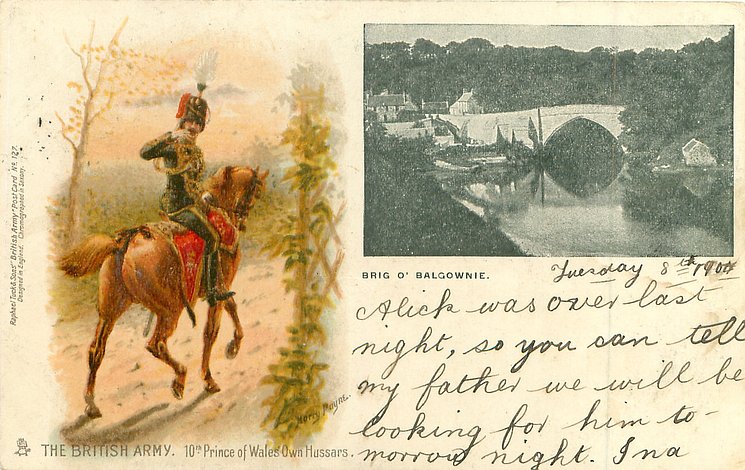 Raphael Tuck & Sons' "British Army" Post Card No 127.
Designed in England. Chromographed in Saxony.
Harry Payne.
THE BRITISH ARMY. 10th Prince of Wales' Own Hussars.
BRIG O' BALGOWNIE.
Tuesday 8th 1904
Alick was over last
night, so you can tell
my father we will be
looking for him to-
morrow night. Ina